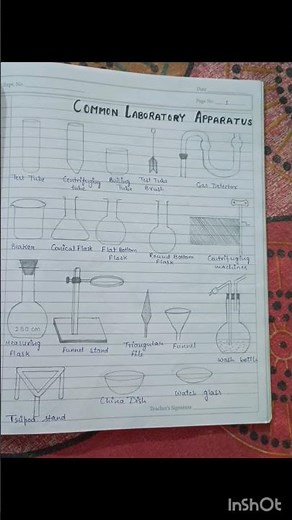 Page No.
Date
Page No. 1
COMMON LABORATORY APPARATUS
Test Tube
Centrifuging tube
Boiling Tube
Test Tube Brush
Gas Detector
Beaker
Conical Flask
Flat Bottom Flask
Round Bottom Flask
Centrifuging machines
250 cm
Measuring Flask
Funnel Stand
Triangular file
Funnel
Wash bottle
Tripod stand
China Dish
Watch glass
Teacher's Signature
InShOt